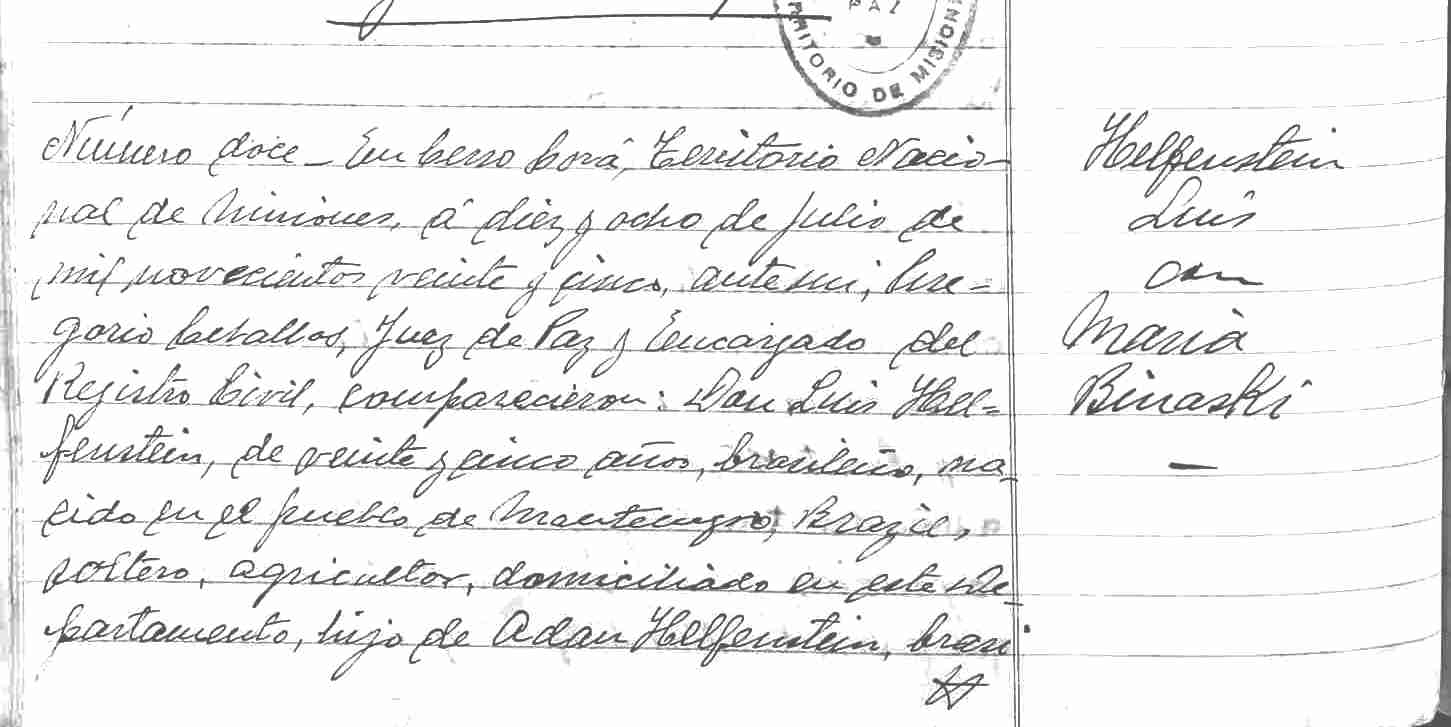 PAZ
RRITORIO DE MISION
Número doce - En Cerro Corá, Territorio Nacio-
nal de Misiones, á diez y ocho de Julio de
mil novecientos veinte y cinco, ante mi, Gre-
gorio Ceballos, Juez de Paz y Encargado del
Registro Civil, comparecieron: Don Luis Hel-
fenstein, de veinte y cinco años, brasileño, na-
cido en el pueblo de Montenegro, Brazil,
soltero, agricultor, domiciliado en este De-
partamento, hijo de Adan Helfenstein, brasi
Helfenstein
Luis
con
Maria
Binaski